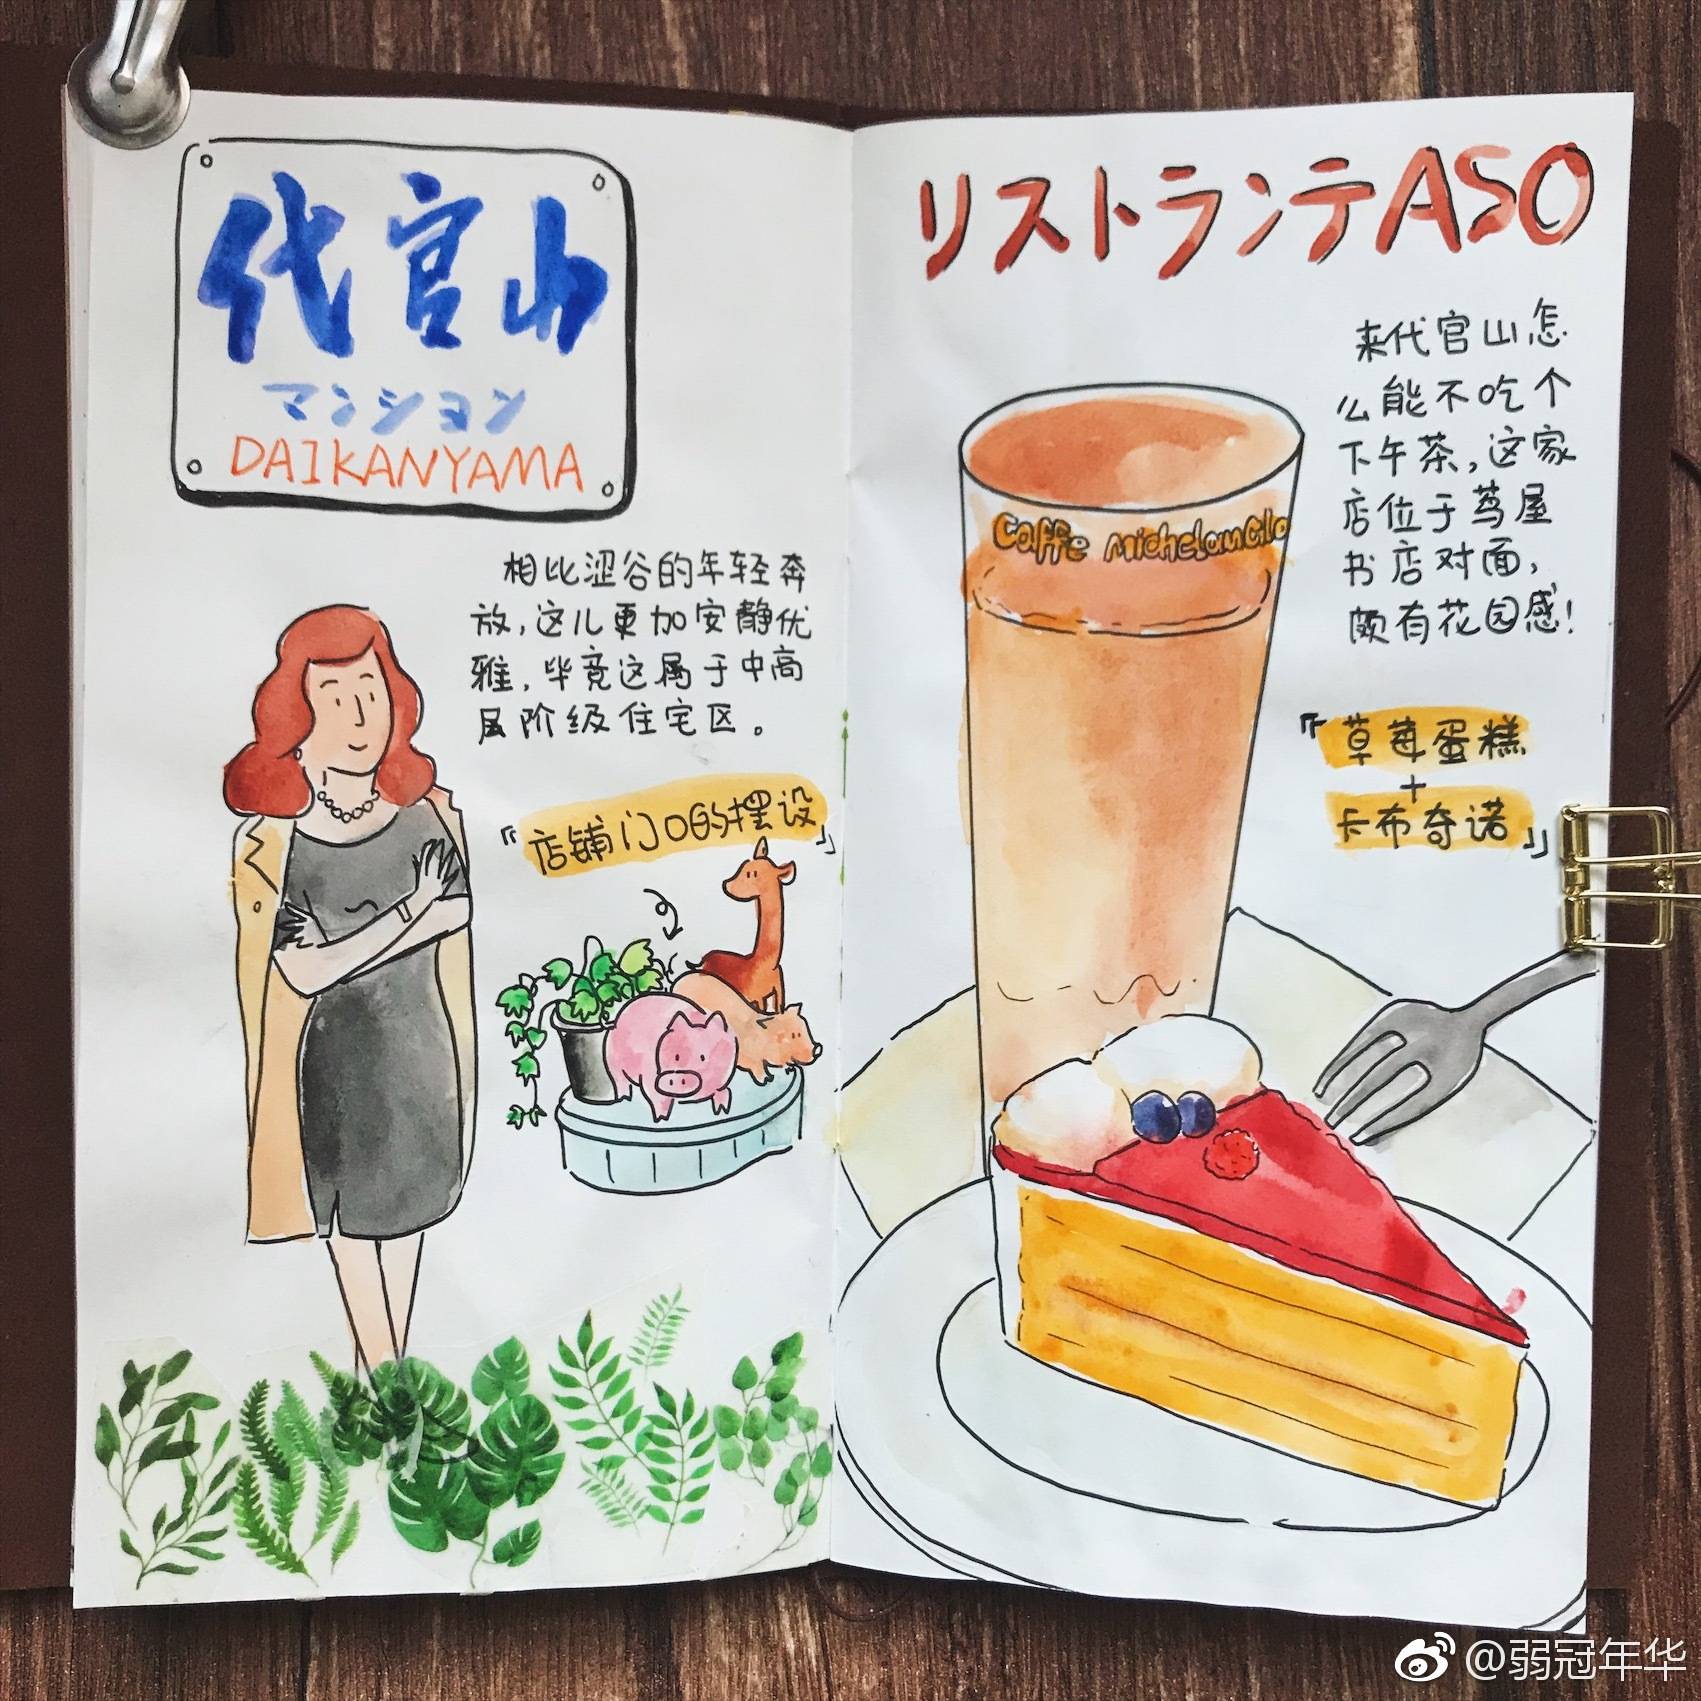 代官山
マンション
DAIKANYAMA
相比涩谷的年轻奔
放，这儿更加安静优
雅，毕竟这属于中高
层阶级住宅区。
『店铺门口的摆设』
リストランテASO
来代官山怎
么能不吃个
下午茶，这家
店位于茑屋
书店对面，
颇有花园感！
caffe michelanGlo
『草莓蛋糕
+
卡布奇诺』
@弱冠年华